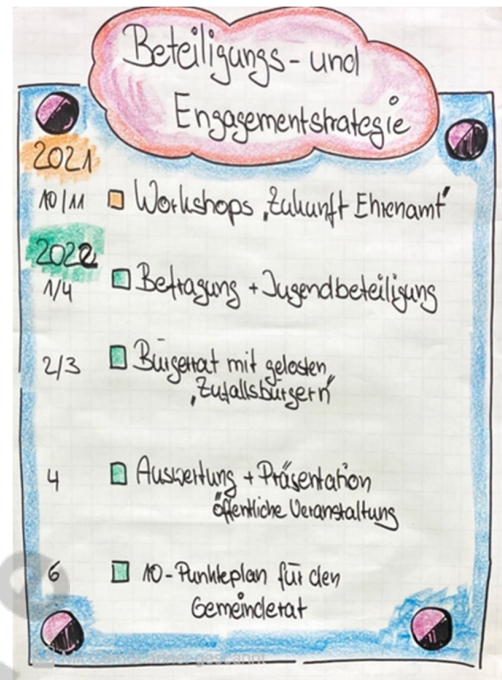 Beteiligungs- und
Engagementstrategie
2021
10/11 Workshops „Zukunft Ehrenamt"
2022
1/4 Befragung + Jugendbeteiligung
2/3 Bürgerrat mit gelosten
„Zufallsbürgern"
4 Auswertung + Präsentation
öffentliche Veranstaltung
6 10-Punkteplan für den
Gemeinderat